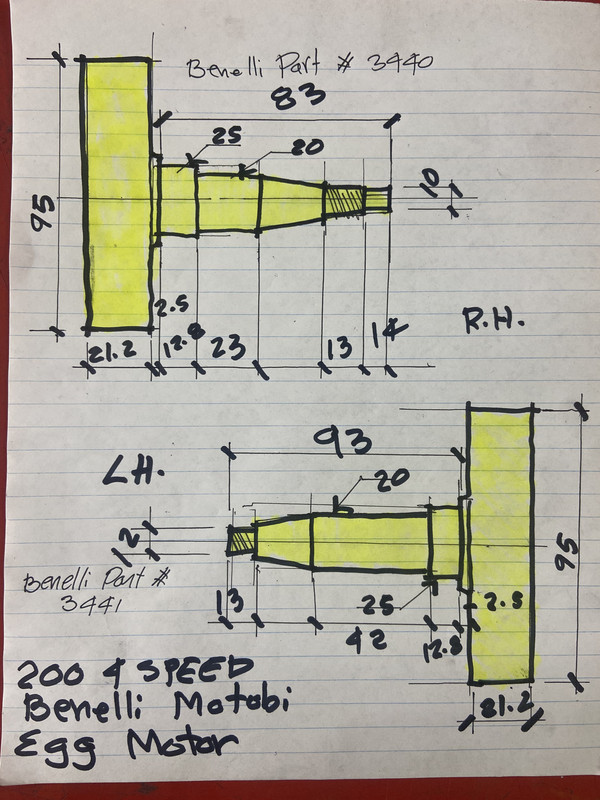 Benelli Part # 3440
83
25
20
10
95
2.5
R.H.
21.2
12.8
23
13
14
93
LH.
20
12
95
Benelli Part #
3441
13
25
2.5
42
12.8
200 4 SPEED
Benelli Motobi
Egg Motor
21.2